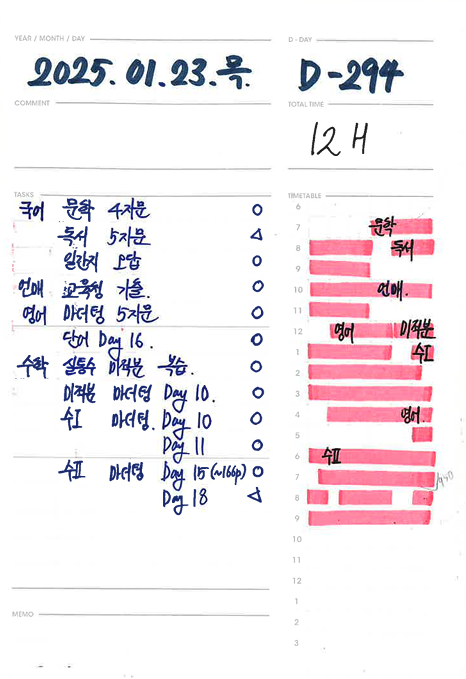 YEAR / MONTH / DAY
2025. 01. 23. 목.
D-DAY
D-294
COMMENT
TOTAL TIME
12 H
TASKS
국어 문학 4지문 O
독서 5지문 △
일간지 오답 O
언매 교육청 기출. O
영어 마더텅 5지문 O
단어 Day 16. O
수학 실동수 미적분 복습. O
미적분 마더텅 Day 10. O
수I 마더텅. Day 10 O
Day 11 O
수II 마더텅 Day 15 (~166p) O
Day 18 △
MEMO
TIMETABLE
6
7 문학
8 독서
9
10 언매.
11
12 영어 미적분
1 수I
2
3
4 영어.
5
6 수II
7
8
9
10
11
12
1
2
3